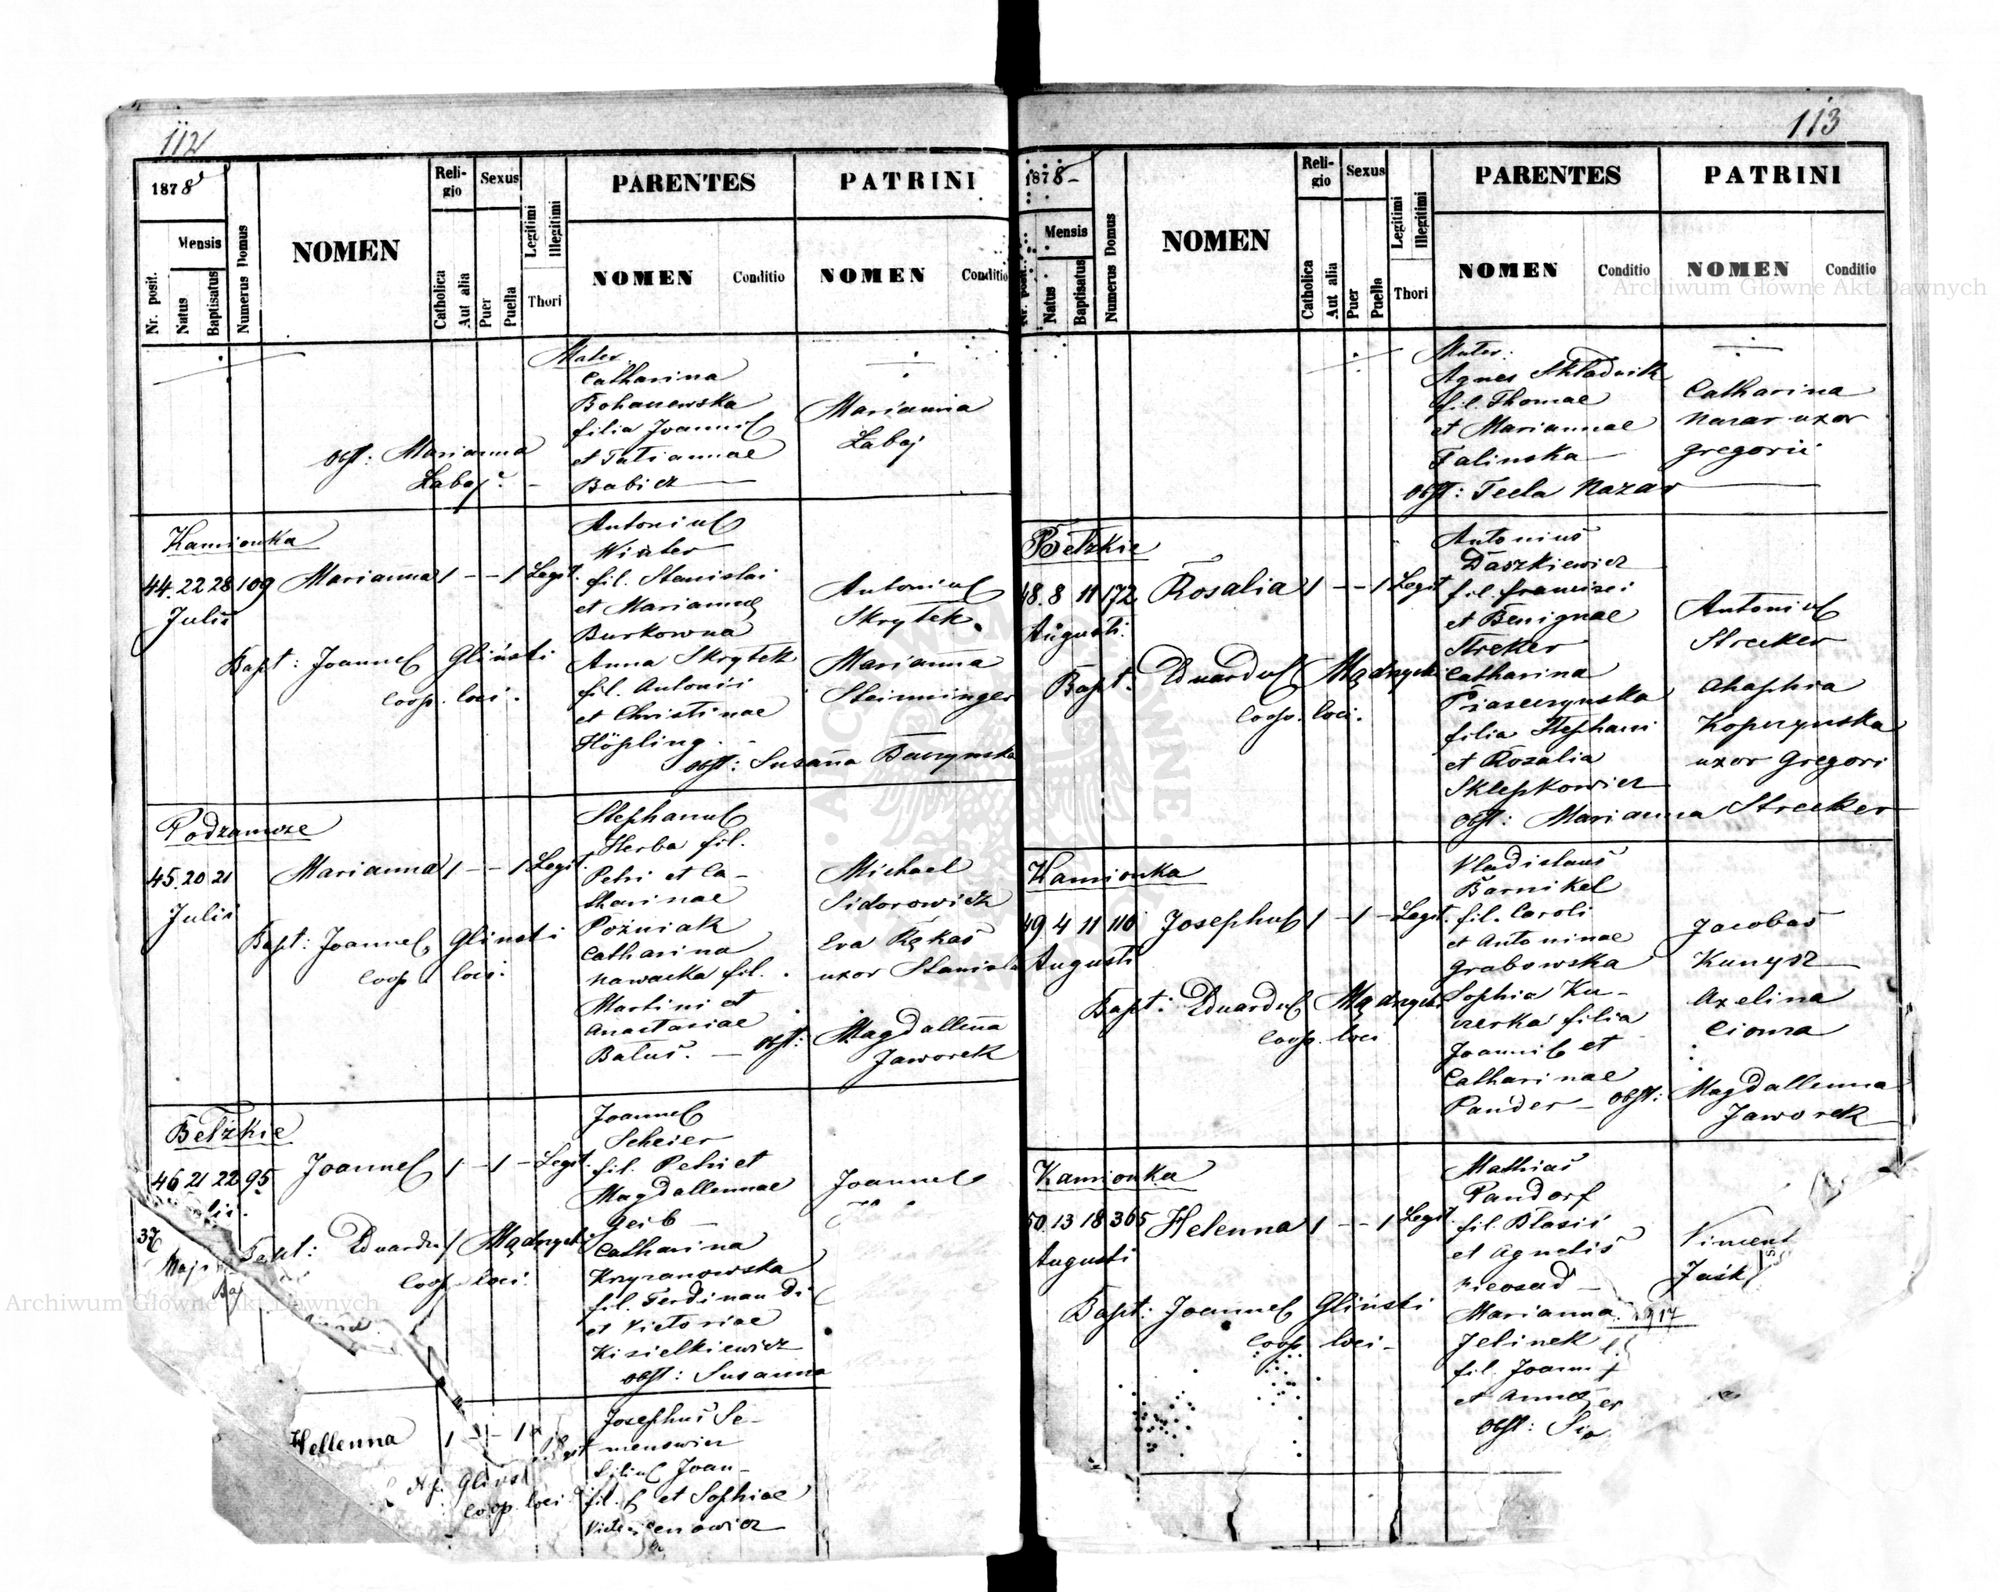 112
1878
Religio
Sexus
PARENTES
PATRINI
Nr. posit.
Mensis
Natus
Baptisatus
Numerus Domus
NOMEN
Catholica
Aut alia
Puer
Puella
Legitimi
Illegitimi
Thori
NOMEN
Conditio
NOMEN
Conditio
Mater
Catharina
Bohanewska
filia Joannis
et Tatiannae
Babicz
Marianna
Łabaj
obst: Marianna
Łabaj
Kamionka
44. 22 28 109 Marianna 1 - - 1 Legit.
Julii
Bapt: Joannes Gliński
coop. loci.
Antonius
Winter
fil. Stanislai
et Mariannae
Burkowna
Anna Skrytek
fil. Antonii
et Christinae
Höpling
Antonius
Skrytek.
Marianna
Steinninger
obst: Susanna
Podzamcze
45. 20 21 Marianna 1 - - 1 Legit.
Julii
Bapt: Joannes Gliński
coop loci.
Stephanus
Herba fil.
Petri et Ca-
tharinae
Pożniak
Catharina
Nawacka fil.
Martini et
Anastasiae
Batus. - obst:
Michael
Sidorowicz
Eva Rękas
uxor
Magdallena
Jaworek
Bełzkie
46 21 22 95 Joannes 1 - 1 - Legit.
Bapt: Eduardus Mądrzycki
coop. loci.
Joannes
Scheier
fil. Petri et
Magdallennae
Geib
Catharina
Krzyzanowska
fil. Ferdinandi
et Victoriae
Kisielkiewicz
obst: Susanna
Joannes
37
Maji
Hellenna 1 - - 1
coop. loci
Josephus Se-
menowicz
filius Joan-
et Sophiae
113
1878
Religio
Sexus
PARENTES
PATRINI
Nr. posit.
Mensis
Natus
Baptisatus
Numerus Domus
NOMEN
Catholica
Aut alia
Puer
Puella
Legitimi
Illegitimi
Thori
NOMEN
Conditio
NOMEN
Conditio
Mater:
Agnes Składnik
fil. Thomae
et Mariannae
Falinska
obst: Tecla Nazar
Catharina
Nazar uxor
Gregorii
Bełzkie
48. 8 11 172 Rosalia 1 - - 1 Legit
Augusti.
Bapt: Eduardus Mądrzycki
coop. loci.
Antonius
Daszkiewicz
fil. Francisci
et Benignae
Streker
Catharina
Piaseczynska
filia Stephani
et Rozalia
Sklepkowicz
obst: Marianna Strecker
Antonius
Strecker
Ahaphia
Kopczynska
uxor Gregori
Kamionka
49 4 11 110 Josephus 1 - 1 - Legit.
Augusti
Bapt: Eduardus Mądrzycki
coop. loci
Vladislaus
Barnikel
fil. Caroli
et Antoninae
Grabowska
Sophia Ku-
czerka filia
Joannis et
Catharinae
Pander - obst:
Jacobus
Kunysz
Azelina
Ciona
Magdallenna
Jaworek
Kamionka
50. 13 18 305 Helenna 1 - - 1 Legit.
Augusti
Bapt: Joannes Gliński
coop. loci.
Mathias
Pandorf
fil. Blasii
et Agnetis
Nieosad
Marianna
Jelinek
fil. Joann
et Annae
obst:
Vincent
Archiwum Główne Akt Dawnych
Archiwum Główne Akt Dawnych